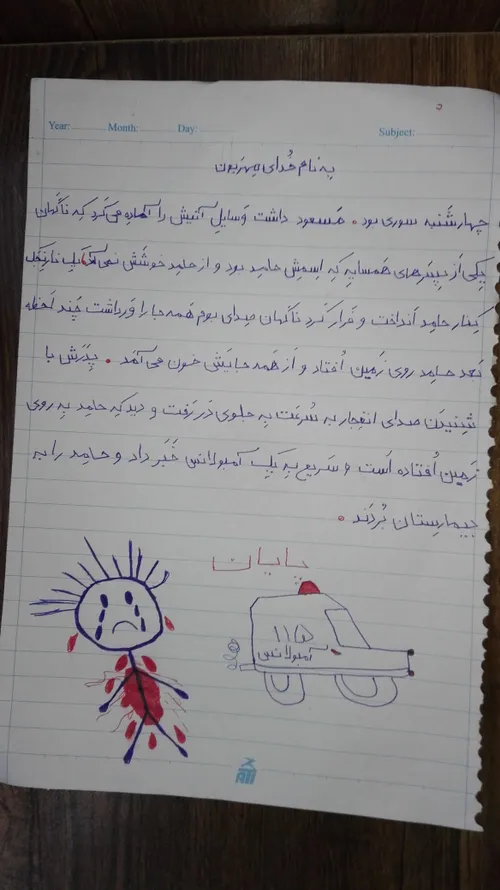 ۲
Year: Month: Day: Subject:
به نام خُدای مِهرَبون
چهارشَنبه سوری بود. مَسعود داشت وَسایِل آتَیش را آماده می‌کَرد که ناگَهان
یِکی اَز پِسَرهای هَمسایه که اِسمِش حامِد بود و از حامِد خوشَش نمی‌آمَد یِک نارَنجَک
کِنارِ حامِد اَنداخت و فَرار کَرد ناگَهان صِدای بوم هَمه جا را وَرداشت چَند لَحظه
بَعد حامِد روی زَمین اُفتاد و اَز هَمه جایَش خون می‌آمَد. پِدَرَش با
شِنیدَن صِدای انفِجار به سُرعَت به جِلوی دَر رَفت و دید که حامِد به روی
زَمین اُفتاده اَست و سَریع به یِک آمبولانس خَبَر داد و حامِد را به
بیمارِستان بُردَند.
پایان
۱۱۵
آمبولانس